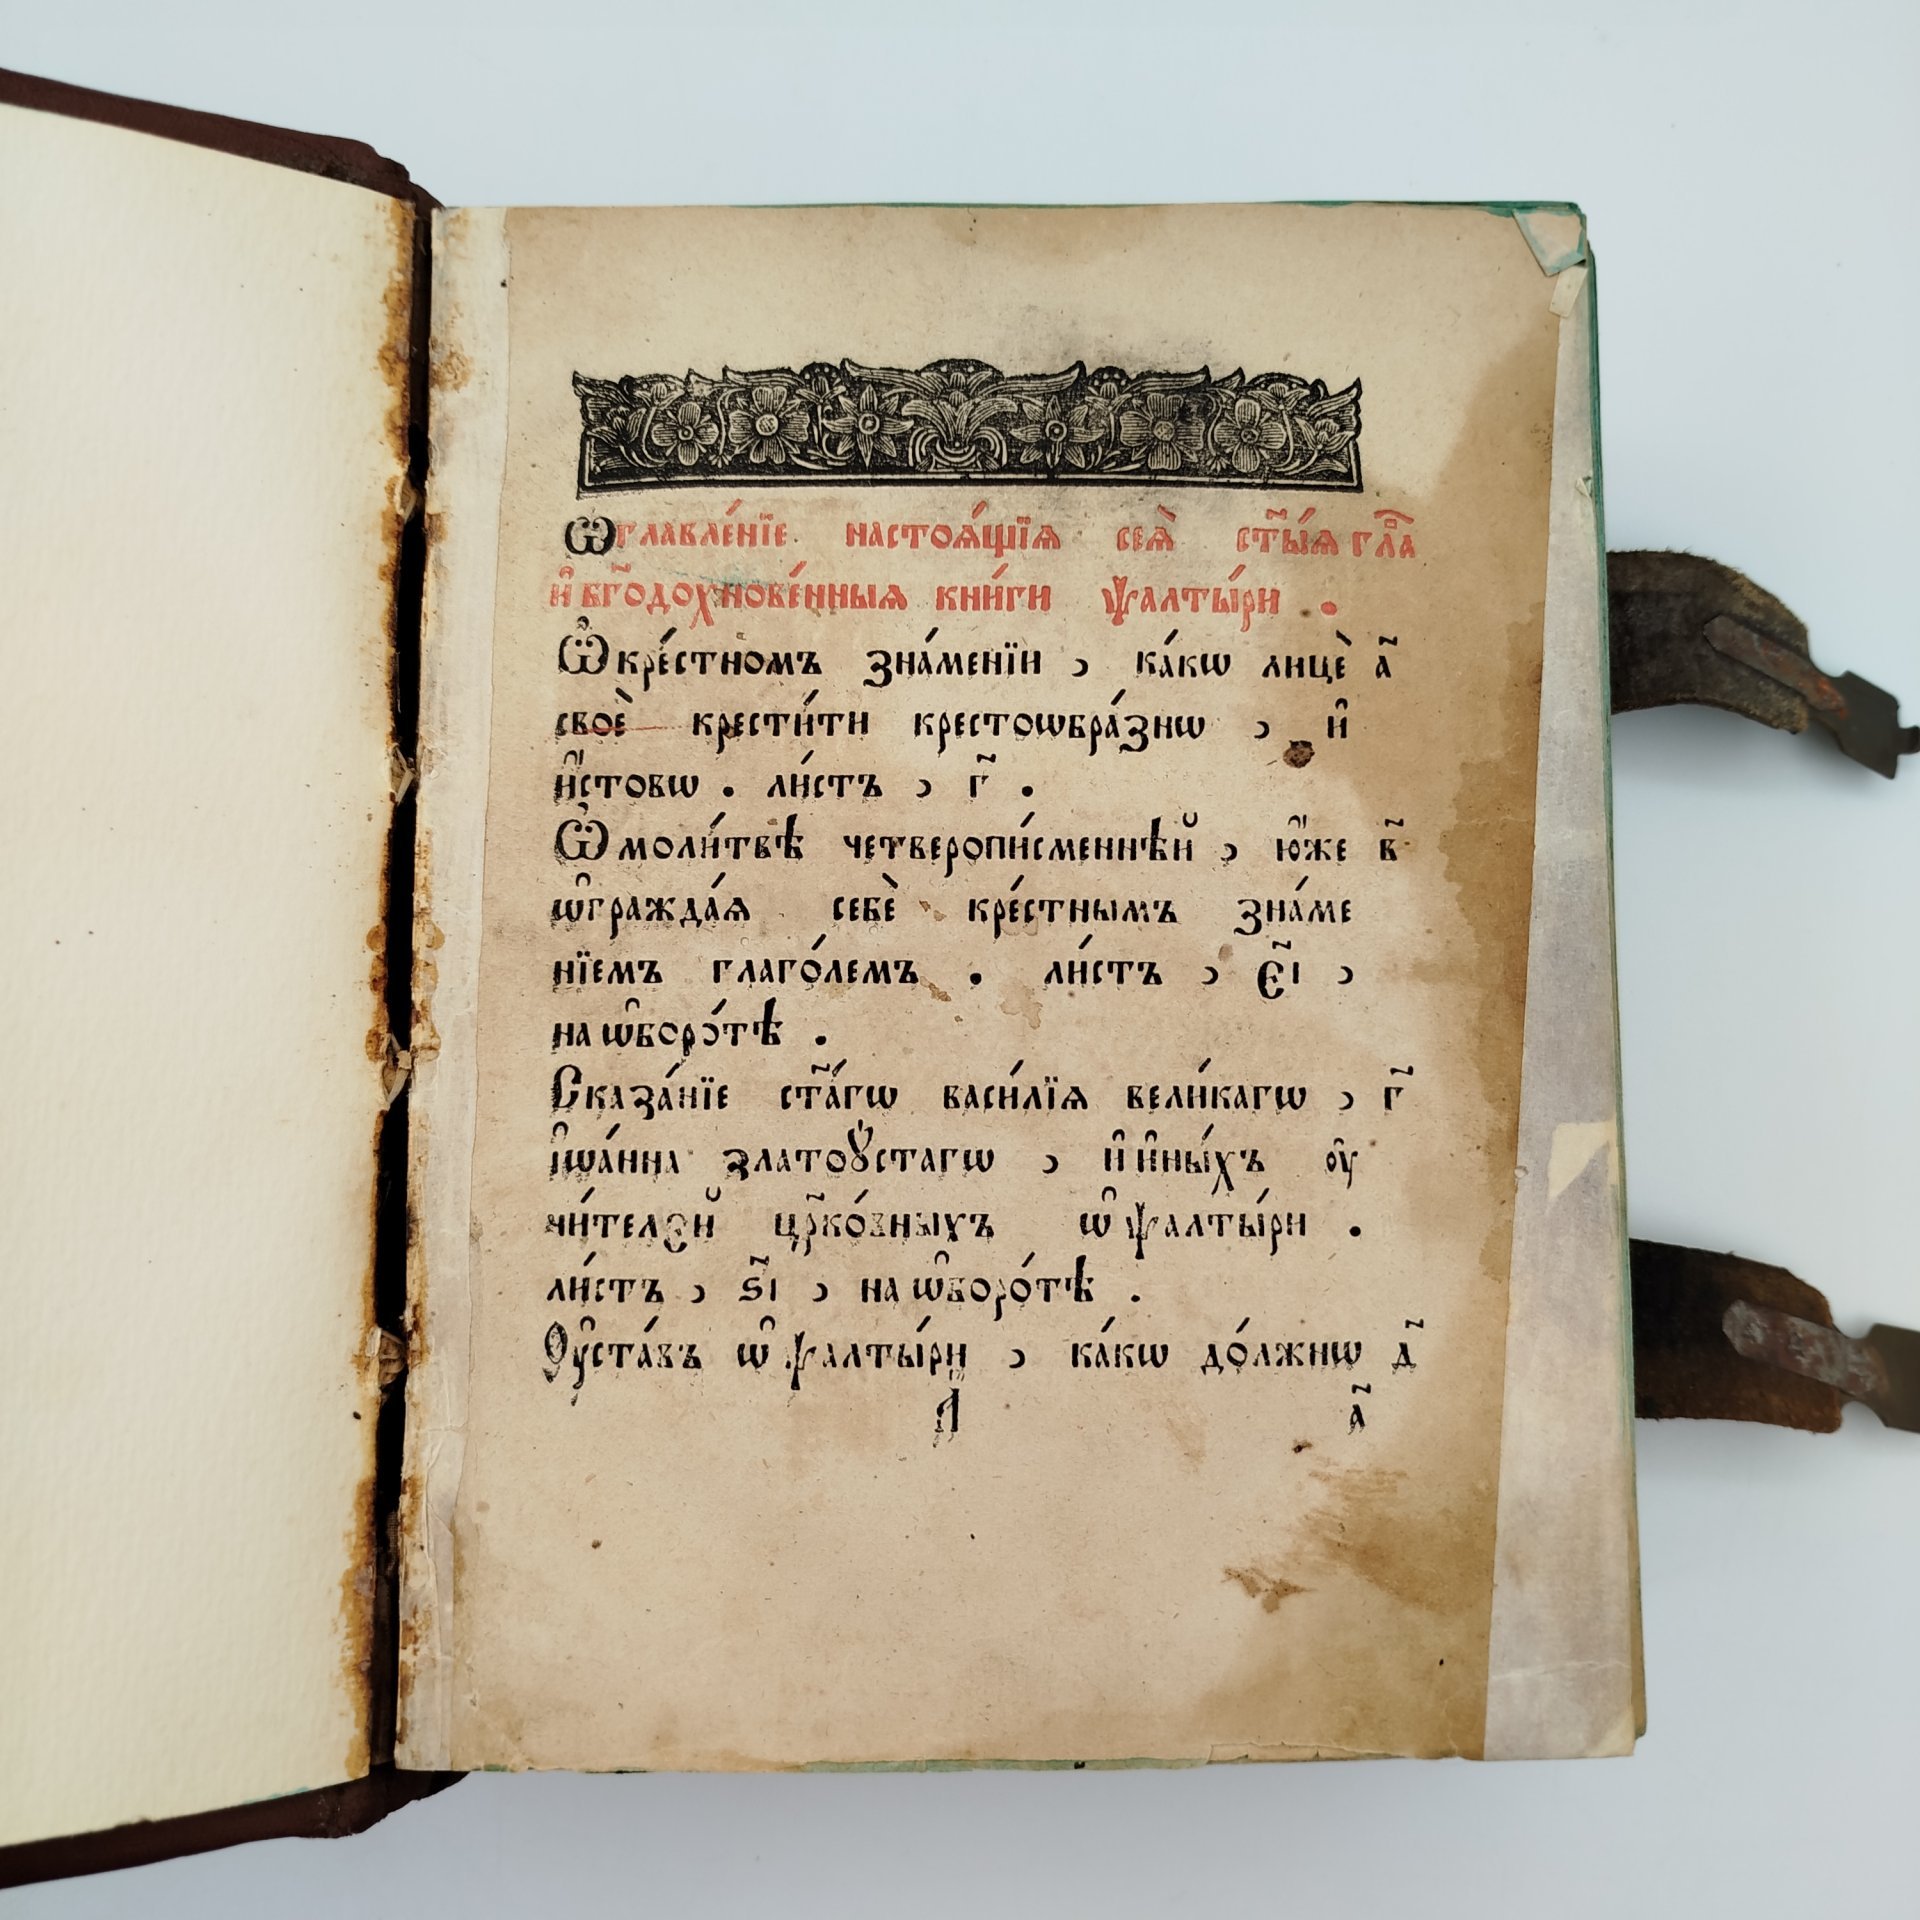 Ѡглавле́нїе настоѧ́щїѧ сеѧ̀ ст҃ы́ѧ гл҃а
и҆ бг҃одохнове́нныѧ кни́ги ѱалты́ри .
Ѽ кре́стномъ зна́менїи , ка́кѡ лицѐ а҃
своѐ крести́ти крестоѡбра́знѡ , и҆
и҆́стовѡ . ли́стъ , г҃ .
Ѽ моли́твѣ четверопи́сменнѣй , ю҆́же в҃
ѡ҆гражда́ѧ себѐ кре́стнымъ зна́ме
нїемъ глаго́лемъ . ли́стъ , є҃і ,
на ѡ҆боро́тѣ .
Сказа́нїе ст҃а́гѡ васи́лїѧ вели́кагѡ , г҃
і҆ѡа́нна златоꙋ́стагѡ , и҆ и҆ны́хъ ᲂу҆
чи́телєй цр҃ко́вныхъ ѡ҆ ѱалты́ри .
ли́стъ , ѕ҃і , на ѡ҆боро́тѣ .
Оу҆ста́въ ѡ҆ ѱалты́ри , ка́кѡ до́лжнѡ д҃
а҃